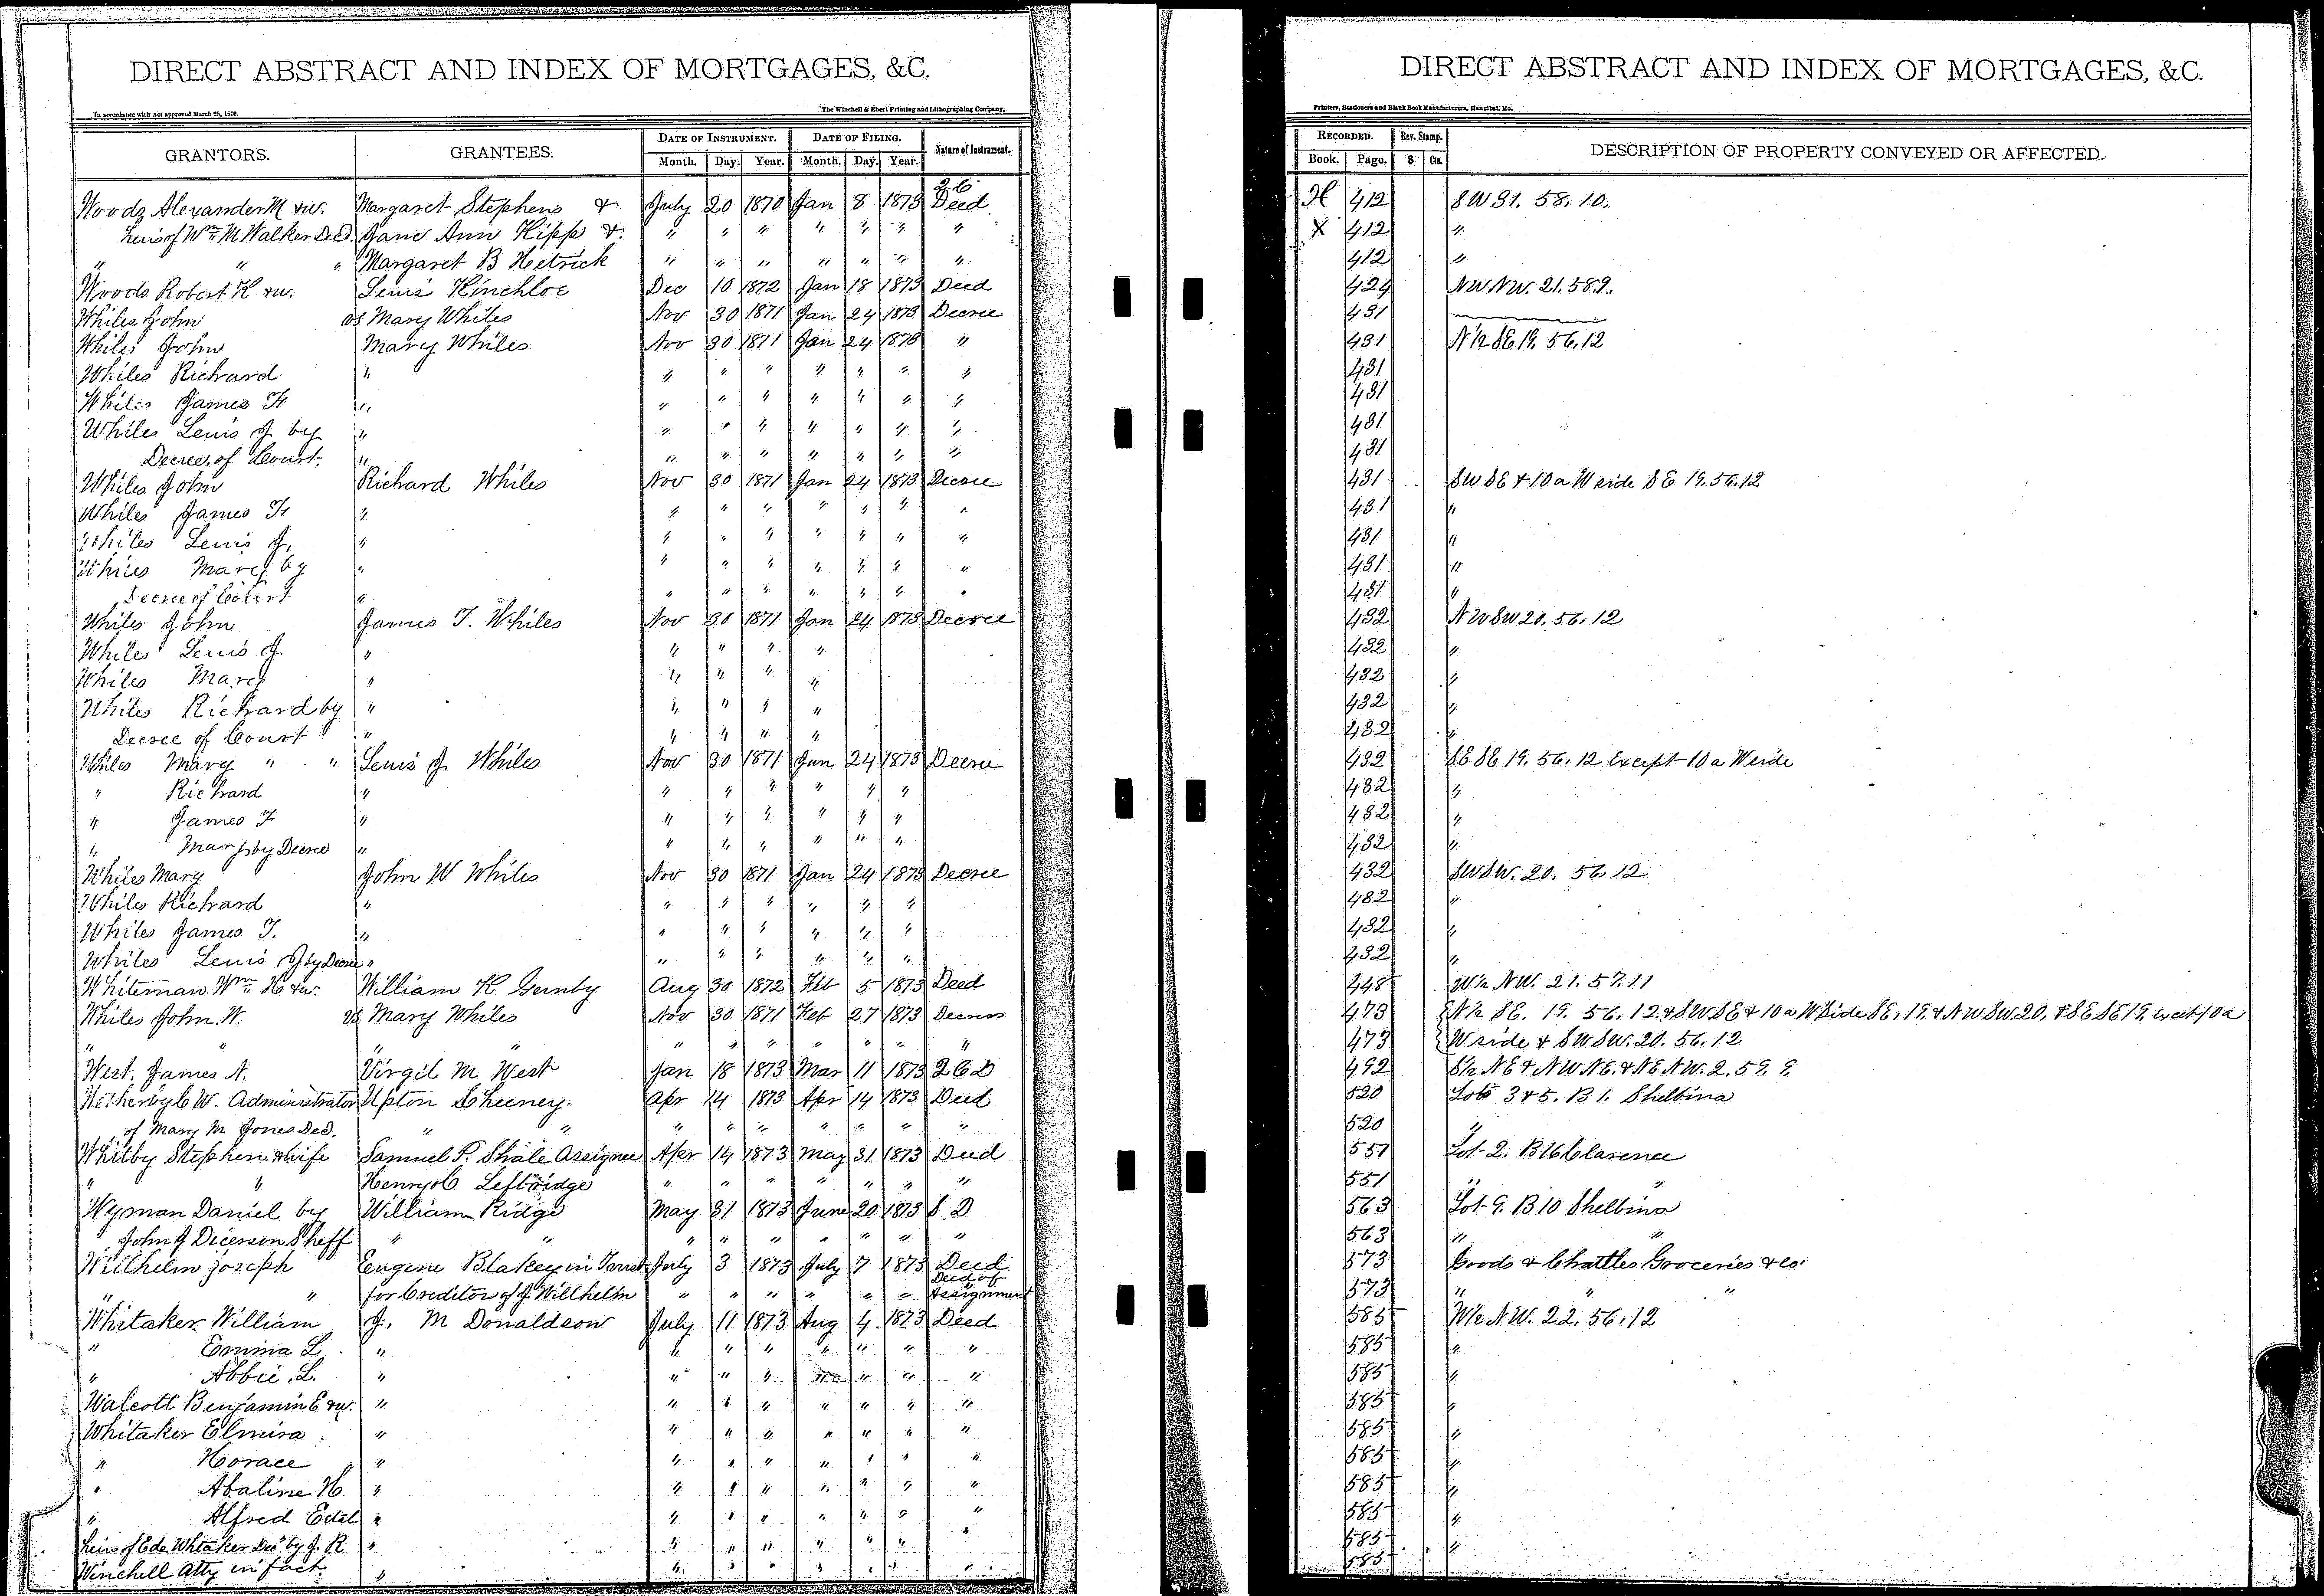 DIRECT ABSTRACT AND INDEX OF MORTGAGES, &C.
In accordance with Act approved March 25, 1870.
The Winchell & Ebert Printing and Lithographing Company,
GRANTORS. GRANTEES. DATE OF INSTRUMENT. DATE OF FILING. Nature of Instrument.
Month. Day. Year. Month. Day. Year.
Woods Alexander M &w. Margaret Stephens & July 20 1870 Jan 8 1873 Deed
heirs of Wm M Walker Decd. Jane Ann Kipp &. " " " " " " "
" " " Margaret B Hetrick " " " " " " "
Woods Robert K &w. Lewis Kinchloe Dec 10 1872 Jan 18 1873 Deed
Whiles John vs Mary Whiles Nov 30 1871 Jan 24 1873 Decree
Whiles John Mary Whiles Nov 30 1871 Jan 24 1873 "
Whiles Richard " " " " " " " "
Whiles James F " " " " " " " "
Whiles Lewis J by " " " " " " " "
Decree of Court. " " " " " " " "
Whiles John Richard Whiles Nov 30 1871 Jan 24 1873 Decree
Whiles James F " " " " " " " "
Whiles Lewis J, " " " " " " " "
Whiles Mary by " " " " " " " "
Decree of Court " " " " " " " "
Whiles John James T. Whiles Nov 30 1871 Jan 24 1873 Decree
Whiles Lewis J. " " " " "
Whiles Mary " " " " "
Whiles Richard by " " " " "
Decree of Court " " " " "
Whiles Mary " " Lewis J Whiles Nov 30 1871 Jan 24 1873 Decree
" Richard " " " " " " "
" James F " " " " " " "
" Mary by Decree " " " " " " "
Whiles Mary John W Whiles Nov 30 1871 Jan 24 1873 Decree
Whiles Richard " " " " " " "
Whiles James T. " " " " " " "
Whiles Lewis J by Decree " " " " " " "
Whiteman Wm H &w. William K Gunby Aug 30 1872 Feb 5 1873 Deed
Whiles John. W. vs Mary Whiles Nov 30 1871 Feb 27 1873 Decree
" " " " " " " " " " "
West, James A. Virgil M West Jan 18 1873 Mar 11 1873 2CD
Wetherby C W. Administrator Upton Cheeney. Apr 14 1873 Apr 14 1873 Deed
of Mary M Jones Decd. " " " " " " " " "
Whitby Stephen & wife Samuel P. Shale Assignee Apr 14 1873 May 31 1873 Deed
" " Henry C Leftridge " " " " " " "
Wyman Daniel by William Ridge May 31 1873 June 20 1873 S. D
John J Dicerson Sheff " " " " " " " " "
Willhelm Joseph Eugene Blakey in Trust July 3 1873 July 7 1873 Deed
" " for Creditors of J Willhelm " " " " " " Deed of Assignment
Whitaker William J. M Donaldson July 11 1873 Aug 4. 1873 Deed
" Emma L " " " " " " " "
" Abbie. L. " " " " " " " "
Walcott Benjamin E &w. " " " " " " " "
Whitaker Elmira " " " " " " " "
" Horace " " " " " " " "
" Abaline H " " " " " " " "
" Alfred Edal " " " " " " " "
heirs of Ede Whitaker Decd by J. R " " " " " " " "
Winchell Atty in fact. " " " " " " " "
DIRECT ABSTRACT AND INDEX OF MORTGAGES, &C.
Printers, Stationers and Blank Book Manufacturers, Hannibal, Mo.
RECORDED. Rev. Stamp. DESCRIPTION OF PROPERTY CONVEYED OR AFFECTED.
Book. Page. $ Cts.
H 412 SW 31. 58. 10.
X 412 "
412 "
424 NW NW. 21. 58 9.
431
431 N 1/2 SE 19. 56. 12
431
431
431
431
431 SW SE & 10 a W side SE 19. 56. 12
431 "
431 "
431 "
431 "
432 NW SW 20. 56. 12
432 "
432 "
432 "
432 "
432 SE SE 19. 56. 12 Except 10 a W side
432 "
432 "
432 "
432 SW SW. 20. 56. 12
432 "
432 "
432 "
448 W 1/2 NW. 21. 57. 11
473 N 1/2 SE. 19. 56. 12. & SW SE & 10 a W Side SE, 19, & NW SW. 20, & SE SE 19, except 10 a
473 W side & SW SW. 20. 56. 12
492 S 1/2 NE & NW NE. & NE NW. 2. 59. 9,
520 Lots 3 & 5. B 1. Shelbina
520 "
551 Lot 2. B 16 Clarence
551 " "
563 Lot 9. B 10 Shelbina
563 " "
573 Goods & Chattles Groceries & co.
573 " " "
585 W 1/2 N. W. 22. 56. 12
585 "
585 "
585 "
585 "
585 "
585 "
585 "
585 "
585